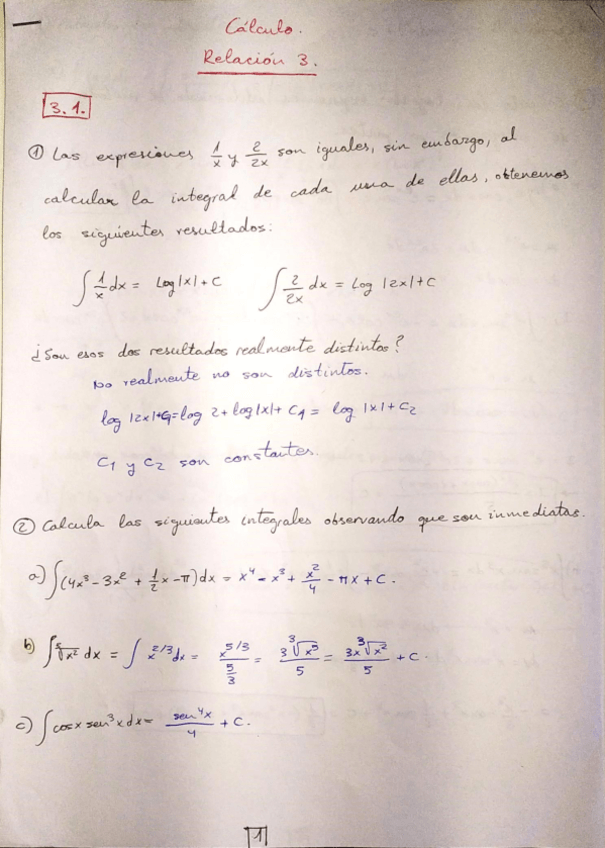 Cálculo.
Relación 3.
3.1.
① Las expresiones 1/x y 2/2x son iguales, sin embargo, al
calcular la integral de cada una de ellas, obtenemos
los siguientes resultados:
∫ 1/x dx = Log|x| + C ∫ 2/2x dx = Log |2x| + C
¿Son esos dos resultados realmente distintos?
No realmente no son distintos.
log |2x| + C₁ = log 2 + log |x| + C₁ = log |x| + C₂
C₁ y C₂ son constantes.
② Calcula las siguientes integrales observando que son inmediatas.
a) ∫(4x³ - 3x² + 1/2 x - π) dx = x⁴ - x³ + x²/4 - πx + C.
b) ∫ ∛x² dx = ∫ x^2/3 dx = x^5/3 / 5/3 = 3∛x⁵ / 5 = 3x∛x² / 5 + C.
c) ∫ cosx sen³x dx = sen⁴x / 4 + C.
1